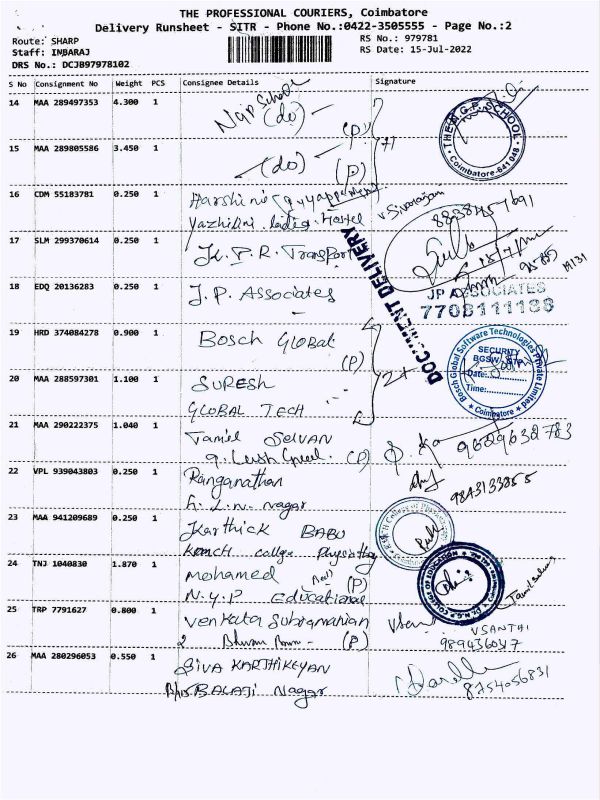 THE PROFESSIONAL COURIERS, Coimbatore
Delivery Runsheet - SITR - Phone No.:0422-3505555 - Page No.:2
Route: SHARP
Staff: INBARAJ
DRS No.: DCJB97978102
RS No.: 979781
RS Date: 15-Jul-2022
S No Consignment No Weight PCS Consignee Details Signature
14 MAA 289497353 4.300 1 NGP School
(do) (P)
15 MAA 289805586 3.450 1 (do) (P)
THE N.G.P. SCHOOL
Coimbatore-641 048
16 CDM 55183781 0.250 1
Yazhilini ladies Hostel
V. Sivarajan
17 SLM 299370614 0.250 1 K. P. R. Transport
DOCUMENT DELIVERY
18 EDQ 20136283 0.250 1 J.P. Associates
JP ASSOCIATES
7708111188
19 HRD 374084278 0.900 1 Bosch GLOBAL
(P)
Bosch Global Software Technologies Private Limited
SECURITY
Date:
Time:
Coimbatore
20 MAA 288597301 1.100 1 SURESH
GLOBAL TECH
21 MAA 290222375 1.040 1 Tamil SELVAN
(P)
9629632783
22 VPL 939043803 0.250 1 Ranganathan
nagar
9843133855
23 MAA 941209689 0.250 1 Karthick BABU
kmch college Physiothy
24 TNJ 1040830 1.870 1 mohamed
(P)
N.G.P Educational
25 TRP 7791627 0.800 1 Venkata Subramanian
2 (P)
V SANTHI
26 MAA 280296053 0.550 1 SIVA KARTHIKEYAN
BALAJI Nagar
8754056831